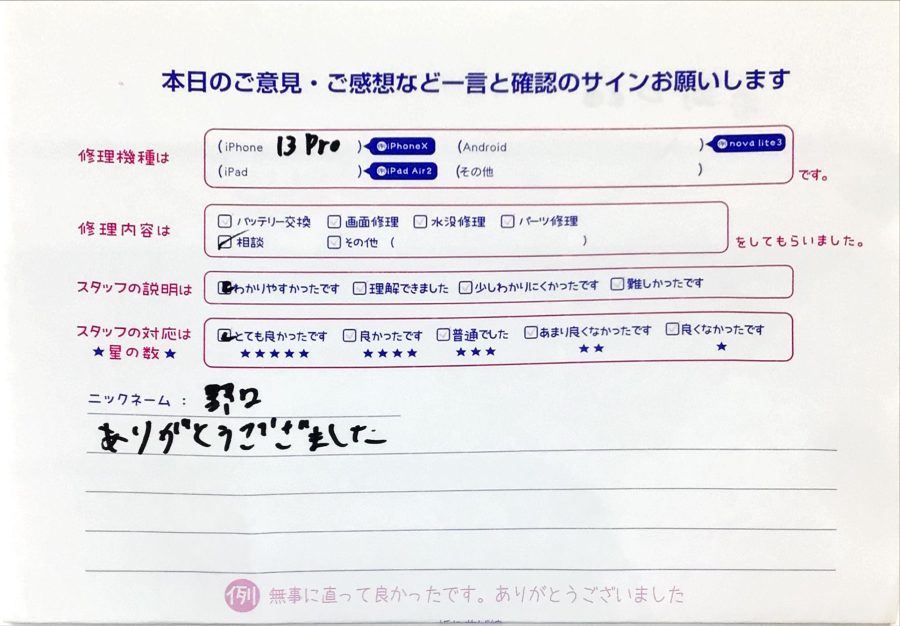 本日のご意見・ご感想など一言と確認のサインお願いします
修理機種は (iPhone 13 Pro ) 例iPhoneX (Android ) 例nova lite3
(iPad ) 例iPad Air2 (その他 ) です。
修理内容は バッテリー交換 画面修理 水没修理 パーツ修理
相談 その他 ( ) をしてもらいました。
スタッフの説明は わかりやすかったです 理解できました 少しわかりにくかったです 難しかったです
スタッフの対応は とても良かったです 良かったです 普通でした あまり良くなかったです 良くなかったです
★星の数★ ★★★★★ ★★★★ ★★★ ★★ ★
ニックネーム :
ありがとうございました
例 無事に直って良かったです。ありがとうございました